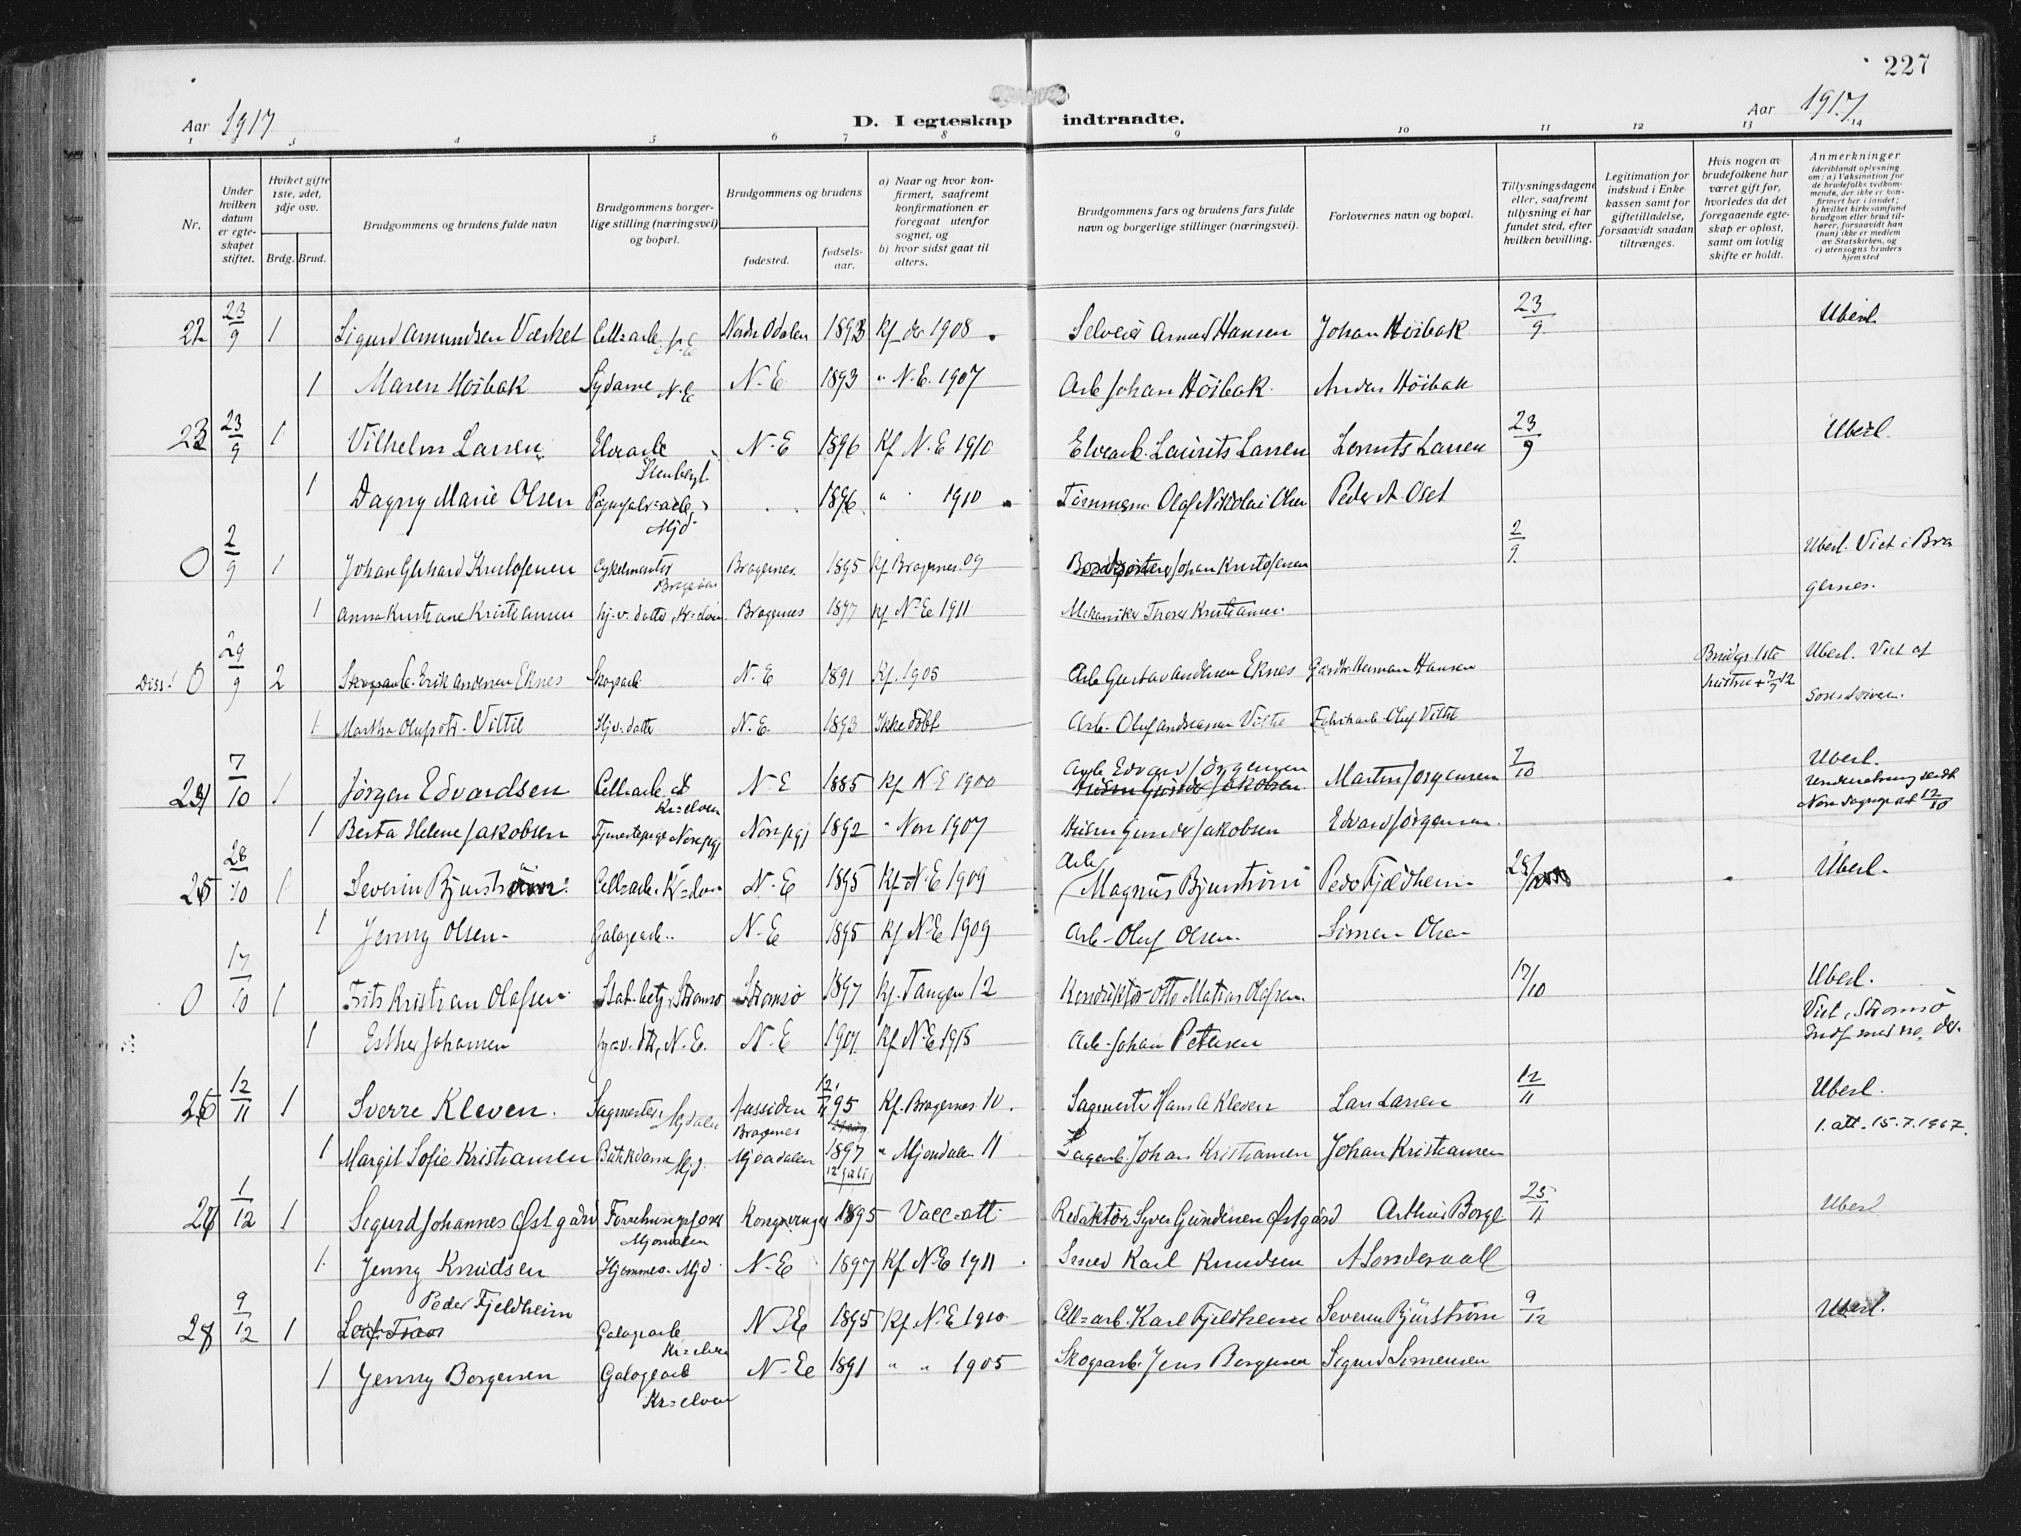 227
Aar 1917
D. I egteskap indtraadte.
Aar 1917
1 2 3 4 5 6 7 8 9 10 11 12 13 14
Nr.
Under hvilken datum er egteskapet stiftet.
Hvilket gifte 1ste, 2det, 3dje osv.
Brdg. Brud.
Brudgommens og brudens fulde navn
Brudgommens borgerlige stilling (næringsvei) og bopæl.
Brudgommens og brudens
fødested.
fødselsaar.
a) Naar og hvor konfirmert, saafremt konfirmationen er foregaat utenfor sognet, og
b) hvor sidst gaat til alters.
Brudgommens fars og brudens fars fulde navn og borgerlige stillinger (næringsvei).
Forlovernes navn og bopæl.
Tillysningsdagene eller, saafremt tillysning ei har fundet sted, efter hvilken bevilling.
Legitimation for indskud i Enkekassen samt for giftetilladelse, forsaavidt saadan tiltrænges.
Hvis nogen av brudefolkene har været gift før, hvorledes da det foregaaende egteskap er opløst, samt om lovlig skifte er holdt.
Anmerkninger
(deriblandt oplysning om: a) Vaksination for de brudefolks vedkommende, der ikke er konfirmert her i landet; b) hvilket kirkesamfund brudgom eller brud tilhører, forsaavidt han (hun) ikke er medlem av Statskirken, og c) utensogns bruders hjemsted
22 23/9 1 Sigurd Amundsen Værket Cellarb N-E Nordre Odalen 1893 Kf do 1908 Selveier Amund Hansen Johan Höibak 23/9 Uberl.
1 Maren Höibak Sydame N-E N-E 1893 " N.E. 1907 Arb Johan Höibak Anders Höibak
23 23/9 1 Vilhelm Larsen Elvearb Stenberg N-E 1896 Kf N-E 1910 Elvearb. Laurits Larsen Laurits Larsen 23/9 Uberl.
1 Dagny Marie Olsen Mjd 1896 " 1910 Tömmerm Olaf Nikolai Olsen Peder A Oset
0 2/9 1 Johan Gerhard Kristofersen Cykelmontör Bragernes 1895 Kf Bragernes 09 Johan Kristofersen 2/9 Uberl. Viet i Bragernes.
1 Anna Kristiane Kristiansen hj.v. datter, Kr=elven Bragernes 1897 Kf N-E 1911 Mekaniker Thore Kristiansen
Diss! 0 29/9 2 Erik Andersen Eknes Skogarb N.E 1891 Kf. 1905 Arb Gustav Andersen Eknes Gårdbr Herman Hansen Brudgs 1ste hustru + 7/7 12 Uberl. Viet af Sorenskriver.
1 Martha Olufsdtr. Viltil Hjv. datter N.E. 1893 Ikke döbt Arb. Oluf Andreassen Viltil Fabrikarb Oluf Viltil
24 7/10 1 Jörgen Edvardsen Cellarb Kr=elven N-E 1885 Kf N-E 1900 Arb Edvard Jörgensen Martin Jörgensen 7/10 Uberl. Underretning sendt Nore sogneprest 12/10
1 Berta Helene Jakobsen Tjenestepige Nore pgj Nore pgj 1892 " Nore 1907 Husm Gunder Jakobsen Edvard Jörgensen
25 28/10 1 Severin Bjurström Cellarb. Kr=elven N-E 1895 Kf N-E 1909 Arb Magnus Bjurström Peder Fjeldheim 28/10 Uberl.
1 Jenny Olsen Galogearb. N-E 1895 Kf N-E 1909 Arb Oluf Olsen Simen Olsen
0 17/10 1 Frits Kristian Olafsen Stat.betj, Strömsö Strömsö 1897 Kf. Tangen 12 Konduktör Otto Matias Olafsen 17/10 Uberl. Viet i Strömsö
1 Esther Johansen hj.v. dtr, N.E. N-E 1901 Kf N-E 1915 Arb Johan Petersen
26 12/11 1 Sverre Kleven Sagmester Mjdalen Åssiden Bragernes 12/11 95 Kf. Bragernes 10. Sagmester Hans A Kleven Lars Larsen 12/11 Uberl. 1. att. 15.7.1967.
1 Margit Sofie Kristiansen Butikdame Mjd. Mjöndalen 1897 12 juli " Mjöndalen 11 Sagarb. Johan Kristiansen Johan Kristiansen
27 1/12 1 Sigurd Johannes Østgård Forretningsförer Mjöndalen Kongsvinger 1895 Vacc=att. Redaktör Syver Gundersen Østgård Arthur Borge 25/11 Uberl
1 Jenny Knudsen Hjemmev. Mjd N-E 1897 Kf N-E 1911 Smed Karl Knudsen A Söndervall
28 9/12 1 Peder Fjeldheim Galogearb Kr=elven N-E 1895 Kf. N-E 1910 Cell=arb. Karl Fjeldheim Severin Bjurström 9/12 Uberl.
1 Jenny Borgersen Galogearb Kr=elven N-E 1891 " " 1905 Skogsarb. Jens Borgersen Sigurd Simensen